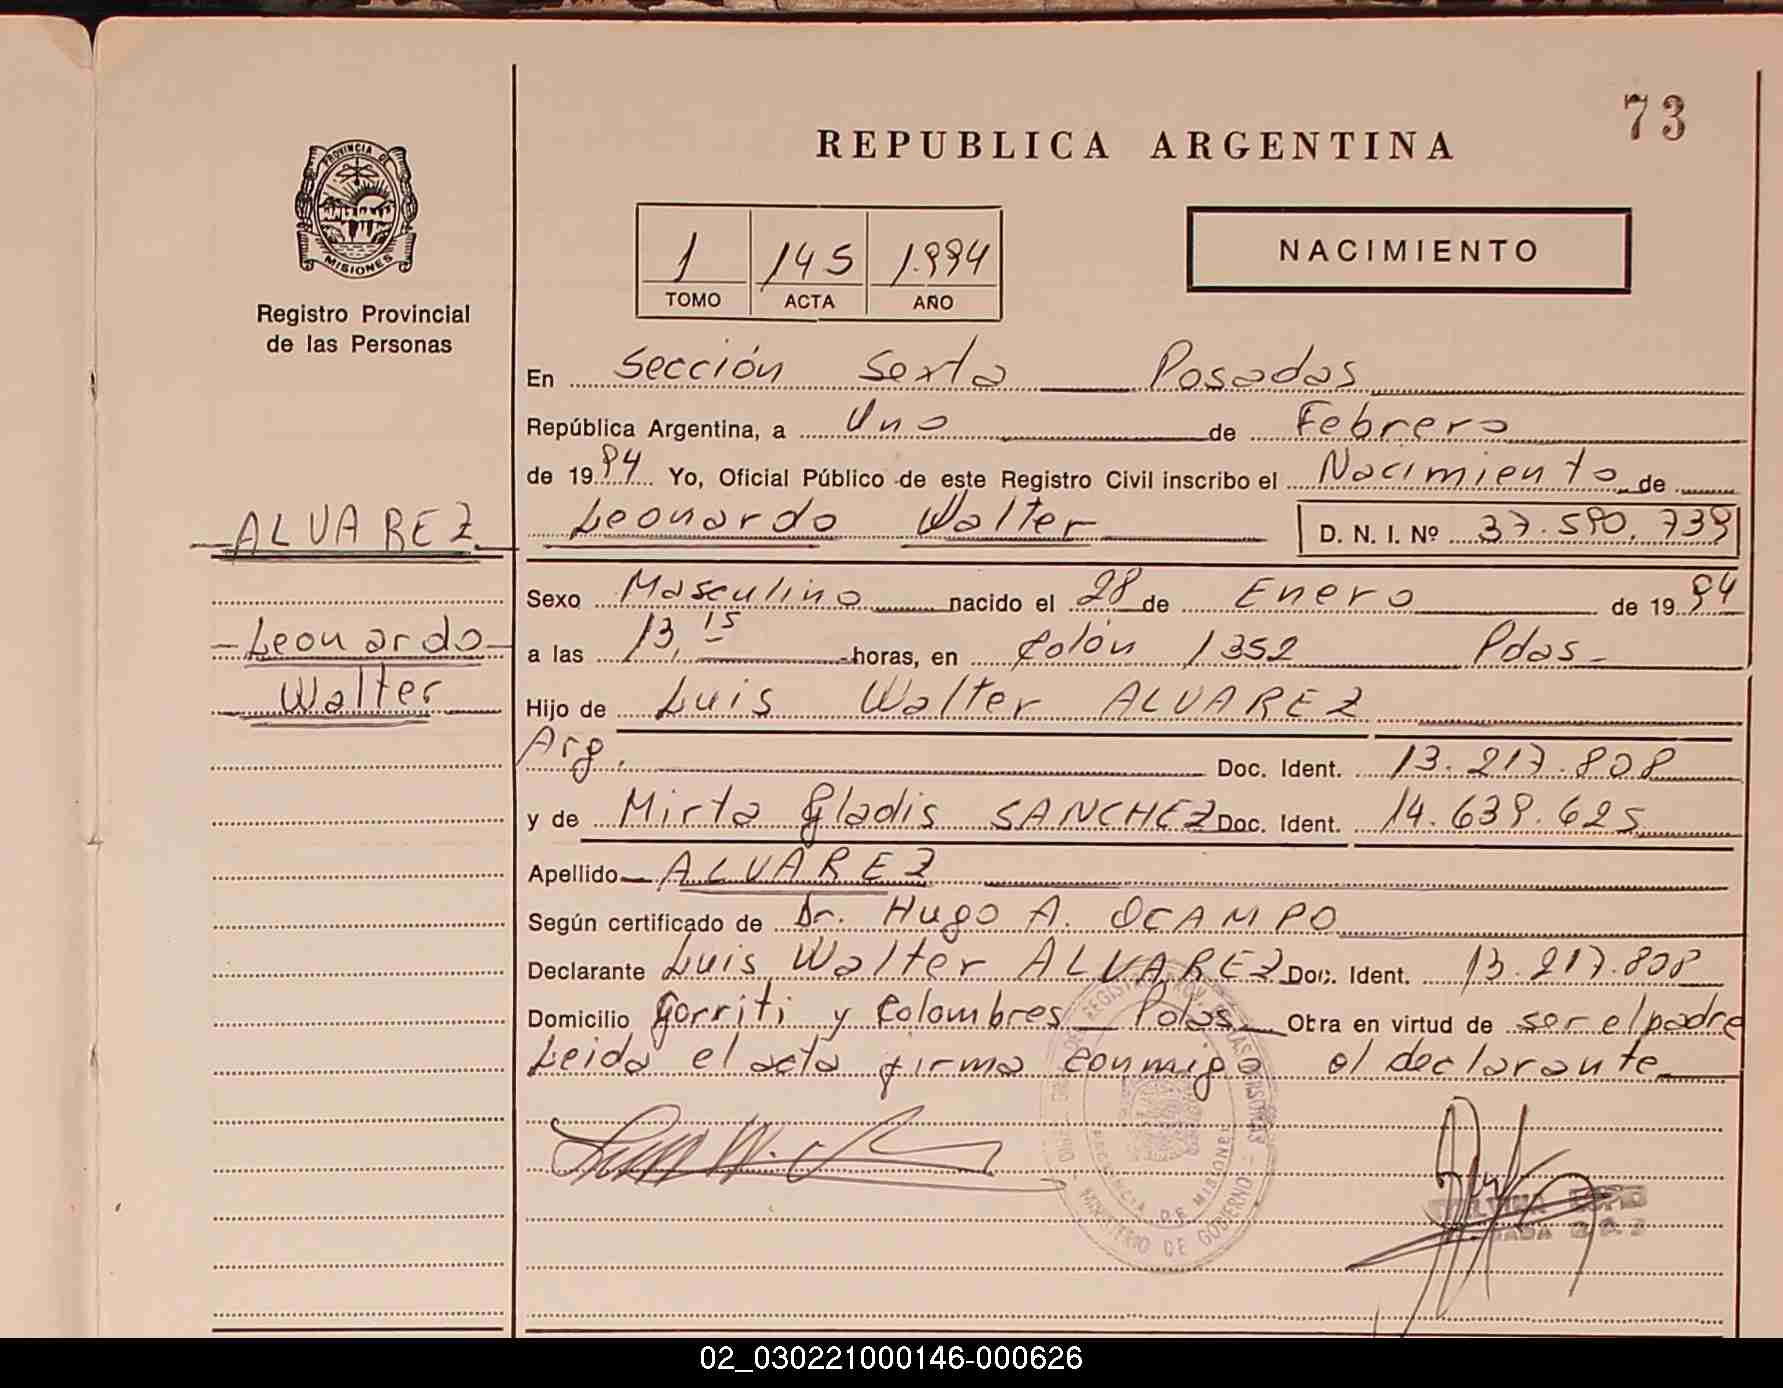 73
REPUBLICA ARGENTINA
PROVINCIA DE
MISIONES
Registro Provincial
de las Personas
1 145 1.994
TOMO ACTA AÑO
NACIMIENTO
En Sección Sexta Posadas
República Argentina, a Uno de Febrero
de 1994 Yo, Oficial Público de este Registro Civil inscribo el Nacimiento de
Leonardo Walter D. N. I. Nº 37.590.739
ALVAREZ
Leonardo
Walter
Sexo Masculino nacido el 28 de Enero de 1994
a las 13,15 horas, en Colón 1352 Pdas-
Hijo de Luis Walter ALVAREZ
Arg. Doc. Ident. 13.217.808
y de Mirta Gladis SANCHEZ Doc. Ident. 14.639.625
Apellido ALVAREZ
Según certificado de Dr. Hugo A. OCAMPO
Declarante Luis Walter ALVAREZ Doc. Ident. 13.217.808
Domicilio Gorriti y Colombres Pdas Obra en virtud de ser el padre
Leida el acta firma conmigo el declarante
MINISTERIO DE GOBIERNO
PROVINCIA DE MISIONES
02_030221000146-000626